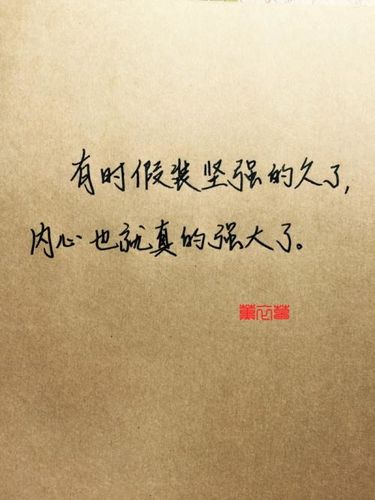 有时假装坚强的久了，
内心也就真的强大了。